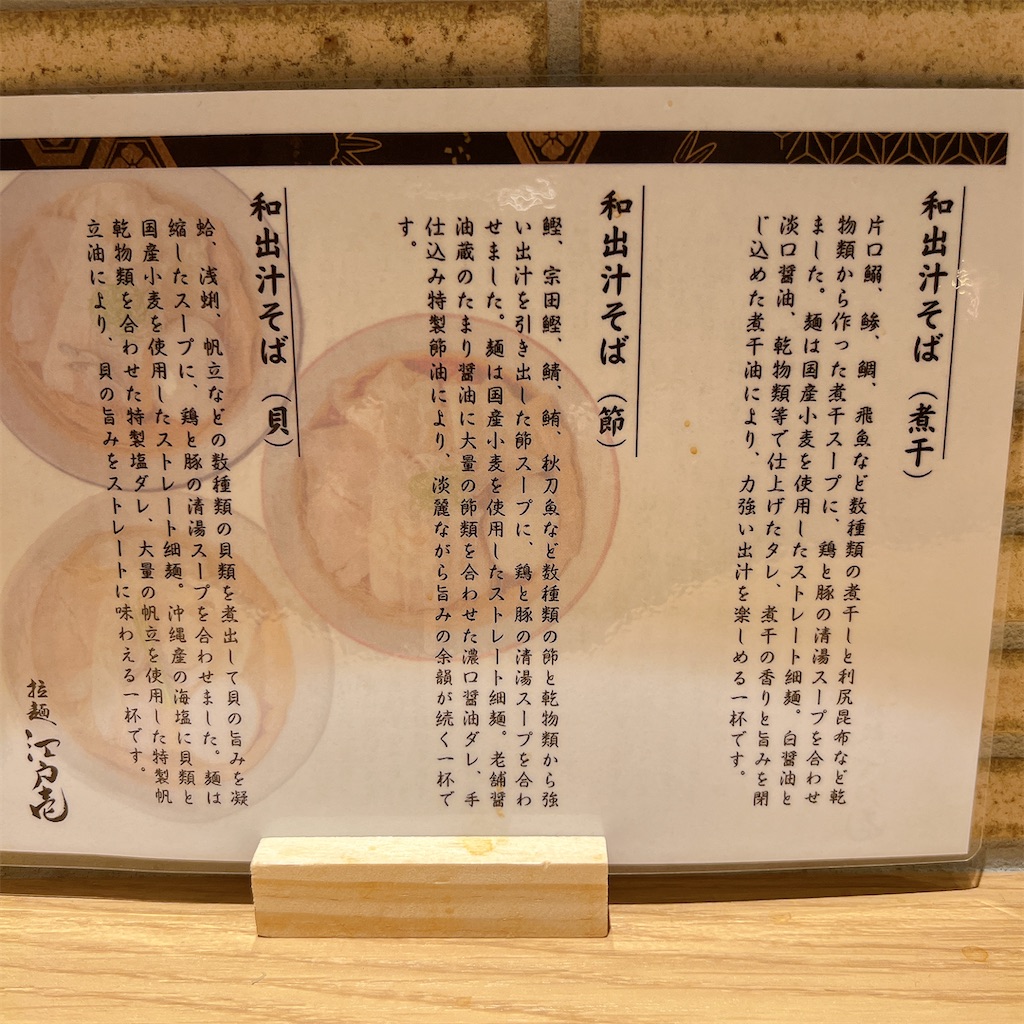 和出汁そば（煮干）
片口鰯、鯵、鯛、飛魚など数種類の煮干しと利尻昆布など乾
物類から作った煮干スープに、鶏と豚の清湯スープを合わせ
ました。麺は国産小麦を使用したストレート細麺。白醤油と
淡口醤油、乾物類等で仕上げたタレ、煮干の香りと旨みを閉
じ込めた煮干油により、力強い出汁を楽しめる一杯です。
和出汁そば（節）
鰹、宗田鰹、鯖、鮪、秋刀魚など数種類の節と乾物類から強
い出汁を引き出した節スープに、鶏と豚の清湯スープを合わ
せました。麺は国産小麦を使用したストレート細麺。老舗醤
油蔵のたまり醤油に大量の節類を合わせた濃口醤油ダレ、手
仕込み特製節油により、淡麗ながら旨みの余韻が続く一杯で
す。
和出汁そば（貝）
蛤、浅蜊、帆立などの数種類の貝類を煮出して貝の旨みを凝
縮したスープに、鶏と豚の清湯スープを合わせました。麺は
国産小麦を使用したストレート細麺。沖縄産の海塩に貝類と
乾物類を合わせた特製塩ダレ、大量の帆立を使用した特製帆
立油により、貝の旨みをストレートに味わえる一杯です。
拉麺 江戸壱